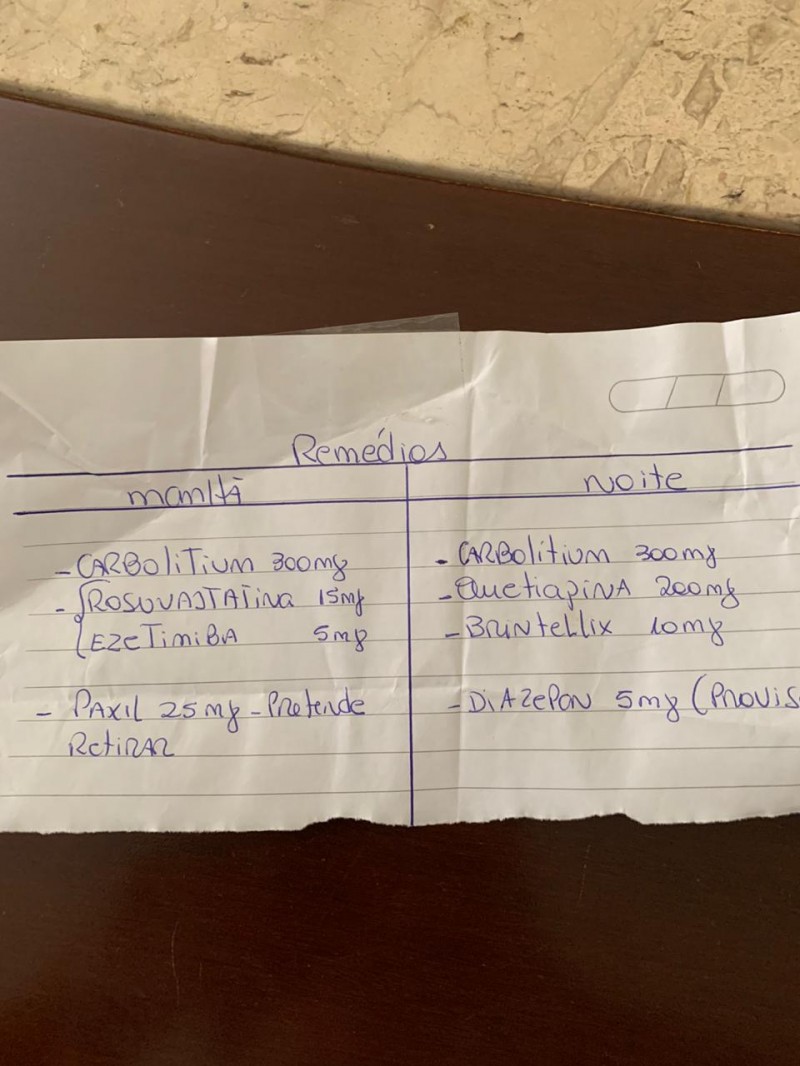 Remédios
manhã
noite
- CARBOLITIUM 300mg
- ROSUVASTATINA 15mg
EZETIMIBA 5mg
- PAXIL 25mg - Pretende
Retirar
- CARBOLITIUM 300mg
- Quetiapina 200mg
- BRINTELLIX 10mg
- DIAZEPON 5mg (PROVIS